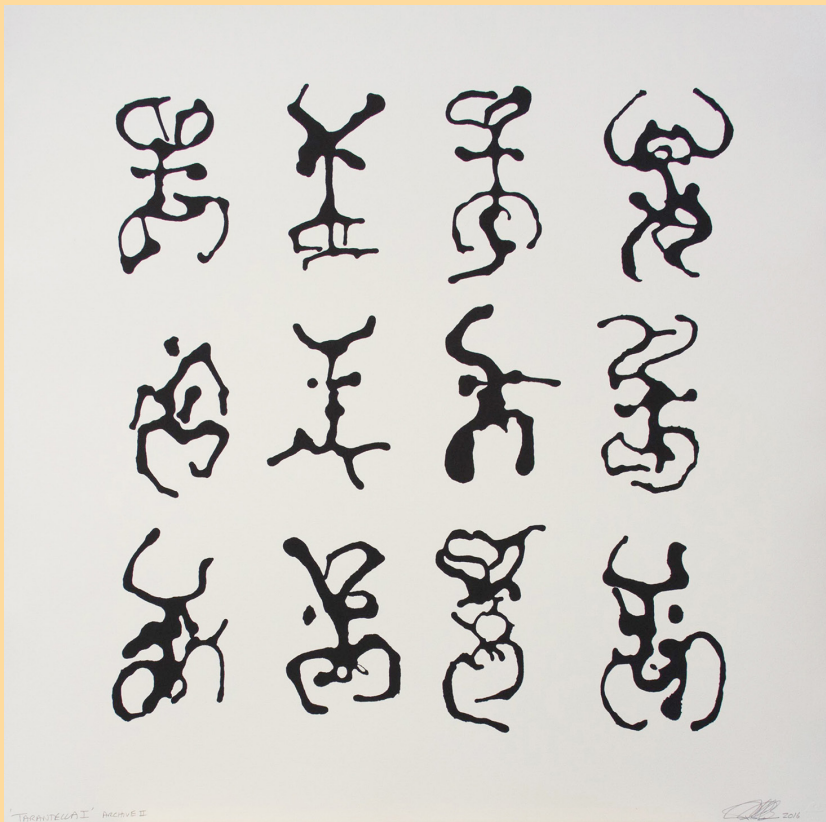 'TARANTELLA I' ARCHIVE II
2016